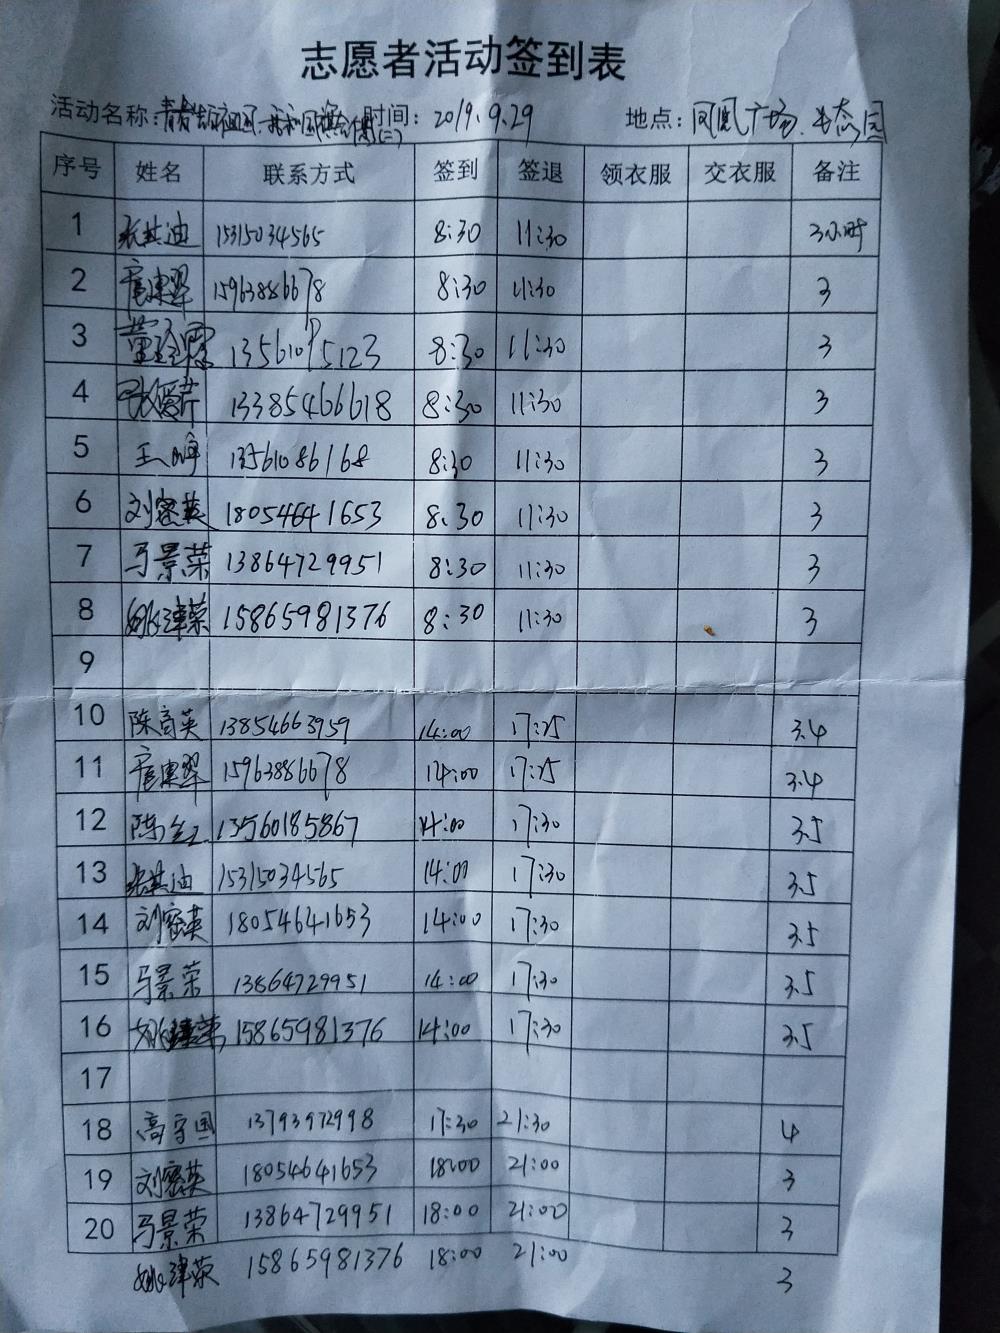 志愿者活动签到表
活动名称: 时间: 2019.9.29 地点: 凤凰广场、生态园
序号 姓名 联系方式 签到 签退 领衣服 交衣服 备注
1 张其迪 15315034565 8:30 11:30 3小时
2 15963886678 8:30 11:30 3
3 13561095123 8:30 11:30 3
4 张爱芹 13385466618 8:30 11:30 3
5 王峥 13561086168 8:30 11:30 3
6 刘密英 18054641653 8:30 11:30 3
7 马景荣 13864729951 8:30 11:30 3
8 姚津荣 15865981376 8:30 11:30 3
9
10 陈高英 13854663959 14:00 17:25 3.4
11 15963886678 14:00 17:25 3.4
12 13560185867 14:00 17:30 3.5
13 张其迪 15315034565 14:00 17:30 3.5
14 刘密英 18054641653 14:00 17:30 3.5
15 马景荣 13864729951 14:00 17:30 3.5
16 姚津荣 15865981376 14:00 17:30 3.5
17
18 高守国 13793972998 17:30 21:30 4
19 刘密英 18054641653 18:00 21:00 3
20 马景荣 13864729951 18:00 21:00 3
姚津荣 15865981376 18:00 21:00 3